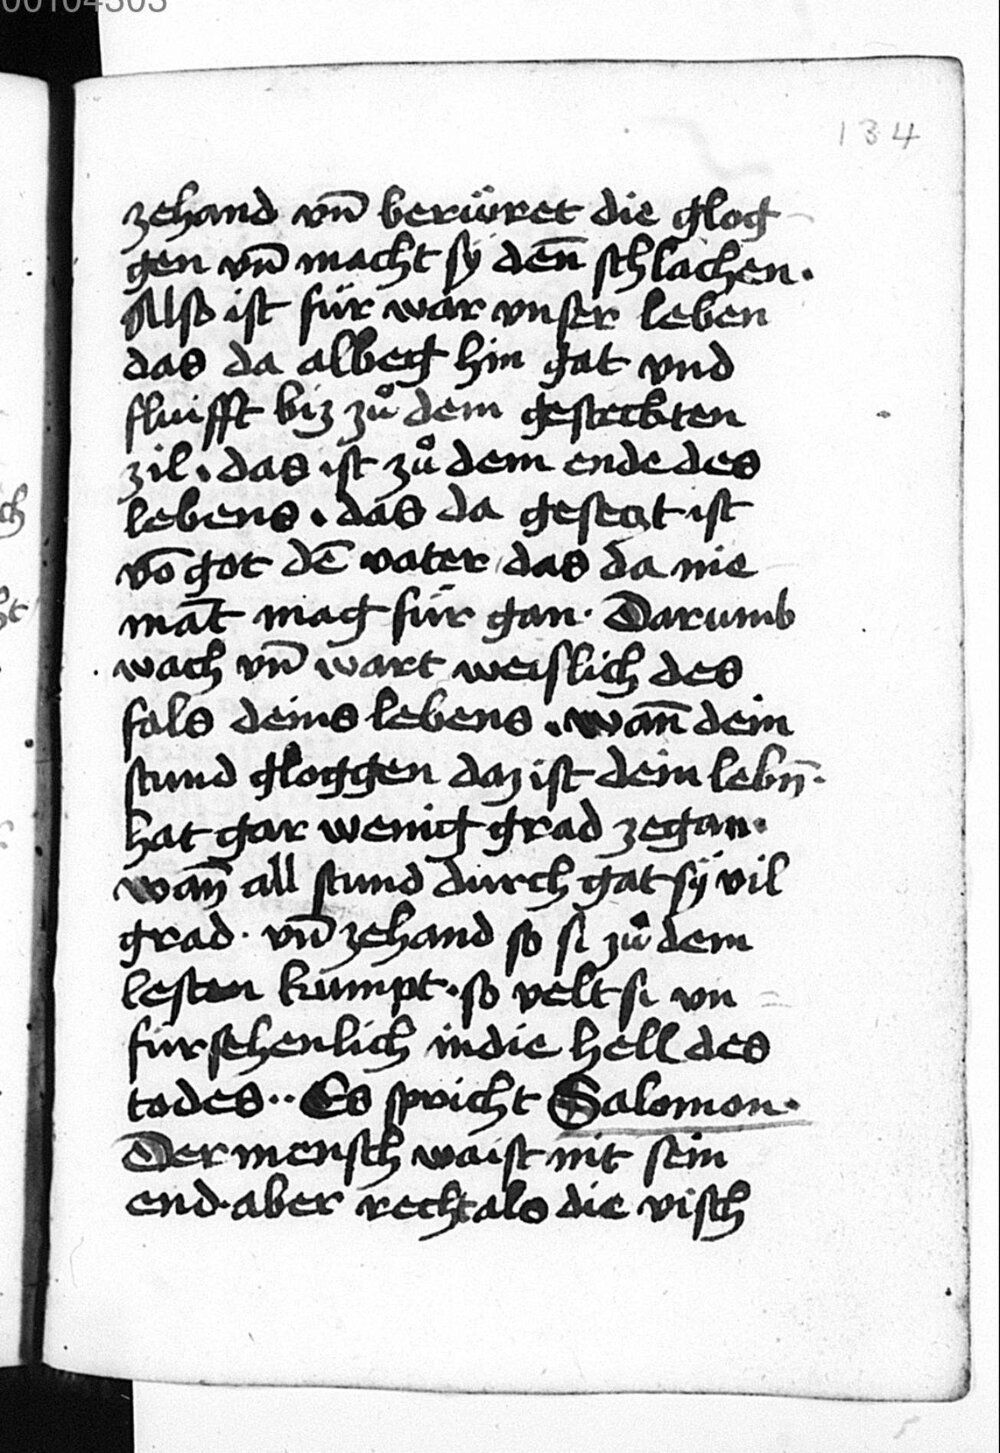 00104303
134
zehand vn̄ berüret die glog-
gen vn̄ macht sÿ den̄ schlachen.
Also ist für war vnser leben
das da albeg hin gat vnd
fluisst biz zů dem gesteckten
zil. das ist zů dem ende des
lebens. das da gesetzt ist
vō got dē vater das da nie
māt mag für gan. Darumb
wach vn̄ wart weislich des
fals deins lebens. wan̄ dein
stund gloggen daz ist dein lebn̄.
hat gar wenig grad zegan.
wan̄ all stund durch gat sÿ vil
grad. vn̄ zehand so si zů dem
lesten kumpt. so velt si vn=
fürsehenlich in die hell des
todes.. Es spricht Salomon.
Der mensch waist nit sein
end. aber recht als die visch